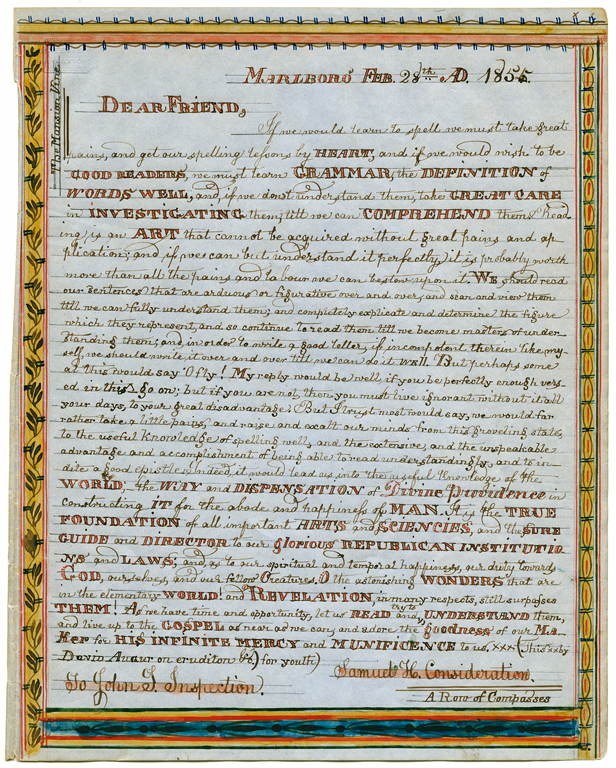 The Mansion Lane
Marlboro' Feb. 28th A.D. 1855.
Dear Friend,
If we would learn to spell we must take great
pains, and get our spelling lessons by HEART; and if we would wish to be
GOOD READERS, we must learn GRAMMAR, the DEFINITION of
WORDS WELL, and, if we don't understand them, take GREAT CARE
in INVESTIGATING them, till we can COMPREHEND them. Read
ing is an ART that cannot be acquired without great pains and ap
plication; and if we can but understand it perfectly, it is probably worth
more than all the pains and labour we can bestow upon it. WE should read
our sentences that are arduous or figurative over and over, and scan and view them
till we can fully understand them; and completely explicate and determine the figure
which they represent, and so continue to read them till we become masters of under
standing them; and, in order to write a good letter, if incompotent therein like my-
self, we should write it over and over till we can do it WELL. But perhaps some
at this would say 'O fly! My reply would be well if you be perfectly enough vers-
ed in this, go on; but if you are not, then you must live ignorant without it all
your days, to your great disadvantage. But I trust most would say, we would far
rather take a little pains, and raise and exalt our minds from this groveling state,
to the useful knowledge of spelling well, and the extensive, and the unspeakable
advantage and accomplishment of being able to read understandingly, and to in-
dite a good epistle; indeed it would lead us into the useful knowledge of the
WORLD, the WAY and DISPENSATION of Divine Providence in
constructing IT for the abode and happiness of MAN. It is the TRUE
FOUNDATION of all important ARTS and SCIENCES, and the SURE
GUIDE and DIRECTOR to our glorious REPUBLICAN INSTITUTIO
NS and LAWS; and, as to our spiritual and temporal happiness, our duty towards
GOD, ourselves, and our fellow Creatures. O the astonishing WONDERS that are
in the elementary WORLD! and REVELATION, in many respects, still surpasses
THEM! As we have time and opportunity, let us READ and try to UNDERSTAND them,
and live up to the GOSPEL as near as we can, and adore the goodness of our MA-
KER for HIS INFINITE MERCY and MUNIFICENCE to us, xxx (This xx by
Davis Augur on eruditon &c.) for youth)
Samuel H. Consideration.
To John I. Inspection.
A Row of Compasses